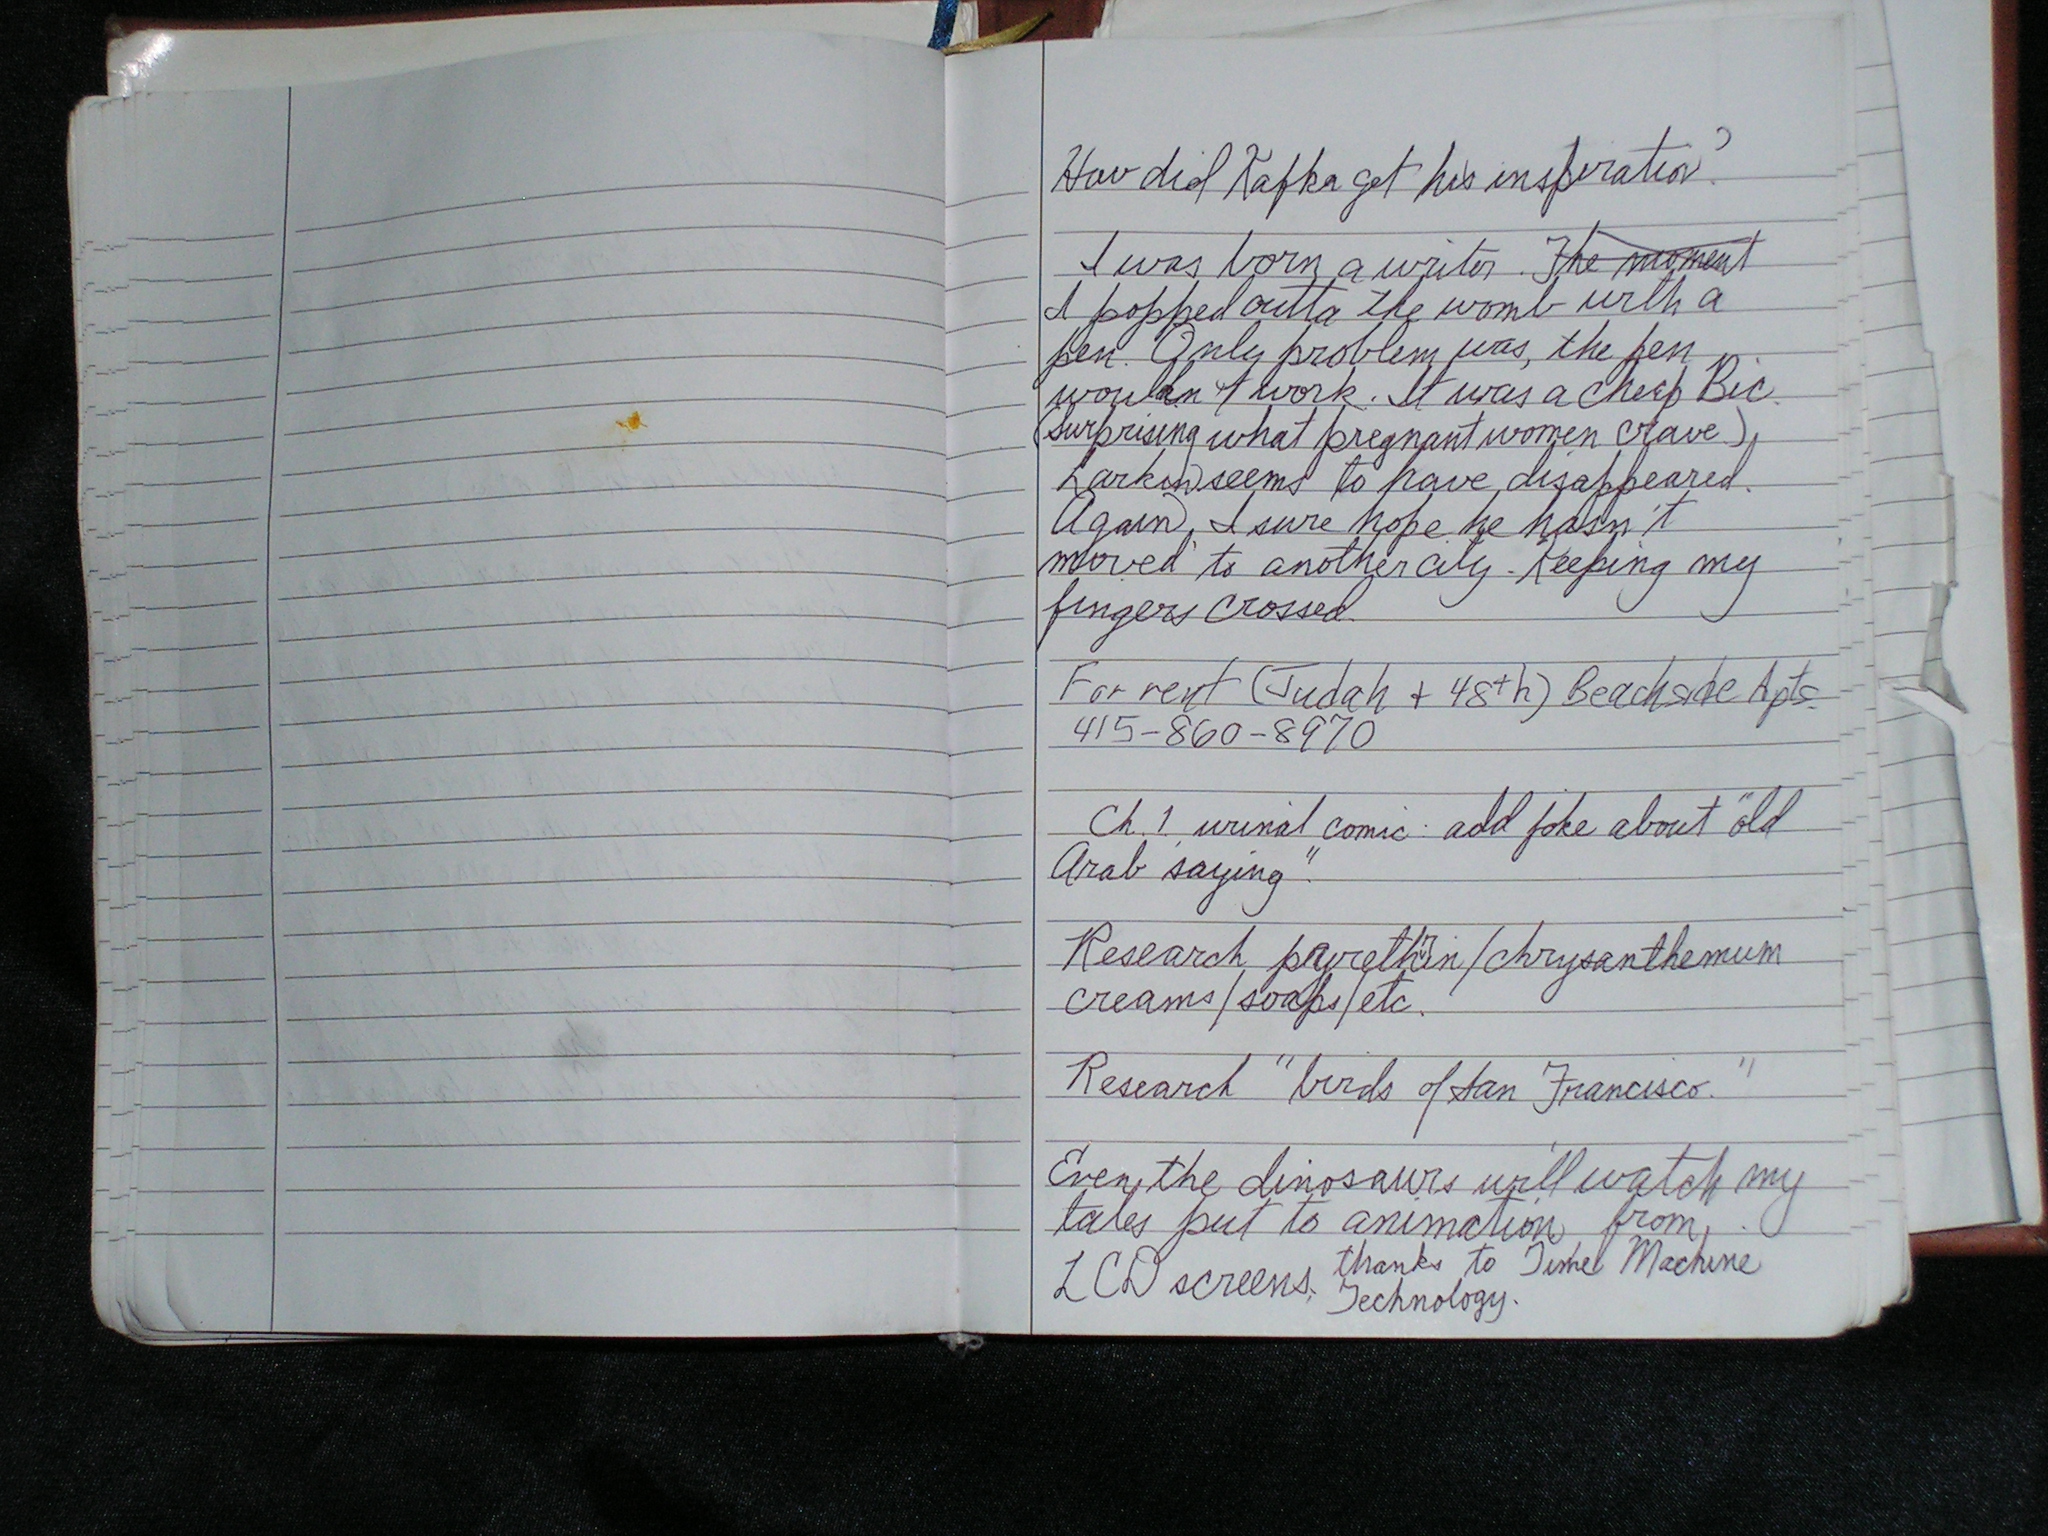 How did Kafka get his inspiration?
I was born a writer. The moment
I popped outta the womb with a
pen. Only problem was, the pen
wouldn't work. It was a cheap Bic.
(Surprising what pregnant women crave.)
Larkin seems to have disappeared.
Again. I sure hope he hasn't
moved to another city. Keeping my
fingers crossed.
For rent (Judah + 48th) Beachside Apts.
415-860-8970
Ch. 1 urinal comic: add joke about "old
Arab saying".
Research pyrethrin/chrysanthemum
creams/soaps/etc.
Research "birds of San Francisco."
Even the dinosaurs will watch my
tales put to animation from
LCD screens, thanks to Time Machine
Technology.